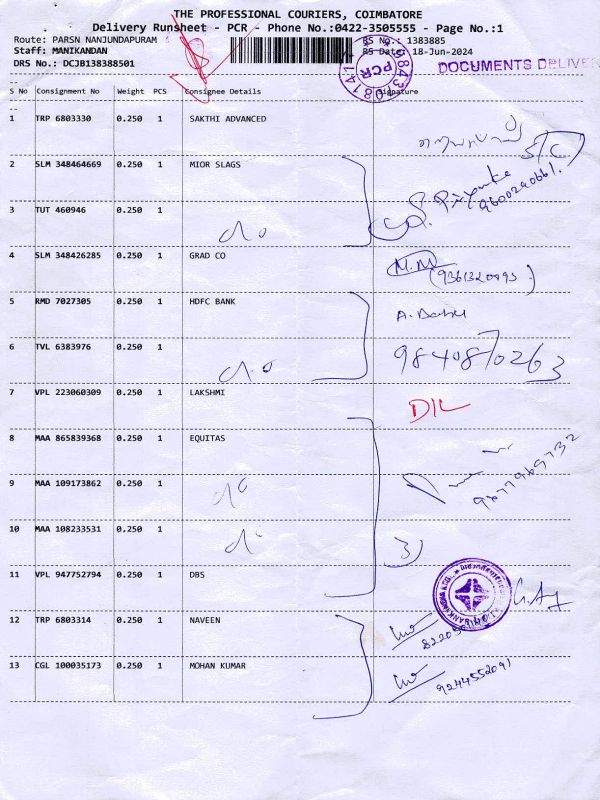 THE PROFESSIONAL COURIERS, COIMBATORE
Delivery Runsheet - PCR - Phone No.:0422-3505555 - Page No.:1
Route: PARSN NANJUNDAPURAM RS No.: 1383885
Staff: MANIKANDAN RS Date: 18-Jun-2024
DRS No.: DCJB138388501
PCR
DOCUMENTS DELIVER
S No Consignment No Weight PCS Consignee Details Signature
1 TRP 6803330 0.250 1 SAKTHI ADVANCED
2 SLM 348464669 0.250 1 MIOR SLAGS
S. Priyanka
9600290661.
3 TUT 460946 0.250 1
4 SLM 348426285 0.250 1 GRAD CO
M.M
(9361320895)
5 RMD 7027305 0.250 1 HDFC BANK
A. Babu
6 TVL 6383976 0.250 1
9840870263
7 VPL 223060309 0.250 1 LAKSHMI
D/L
8 MAA 865839368 0.250 1 EQUITAS
9 MAA 109173862 0.250 1
10 MAA 108233531 0.250 1
3)
11 VPL 947752794 0.250 1 DBS
12 TRP 6803314 0.250 1 NAVEEN
13 CGL 100035173 0.250 1 MOHAN KUMAR
9244552091